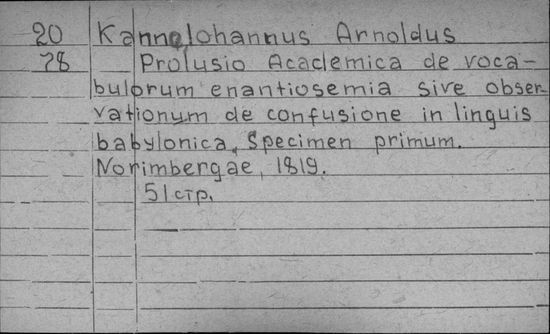 20 Kanne, Johannus Arnoldus
78 Prolusio Academica de voca-
bulorum enantiosemia sive obser-
vationum de confusione in linguis
babylonica, Specimen primum.
Norimbergae, 1819.
51 стр.